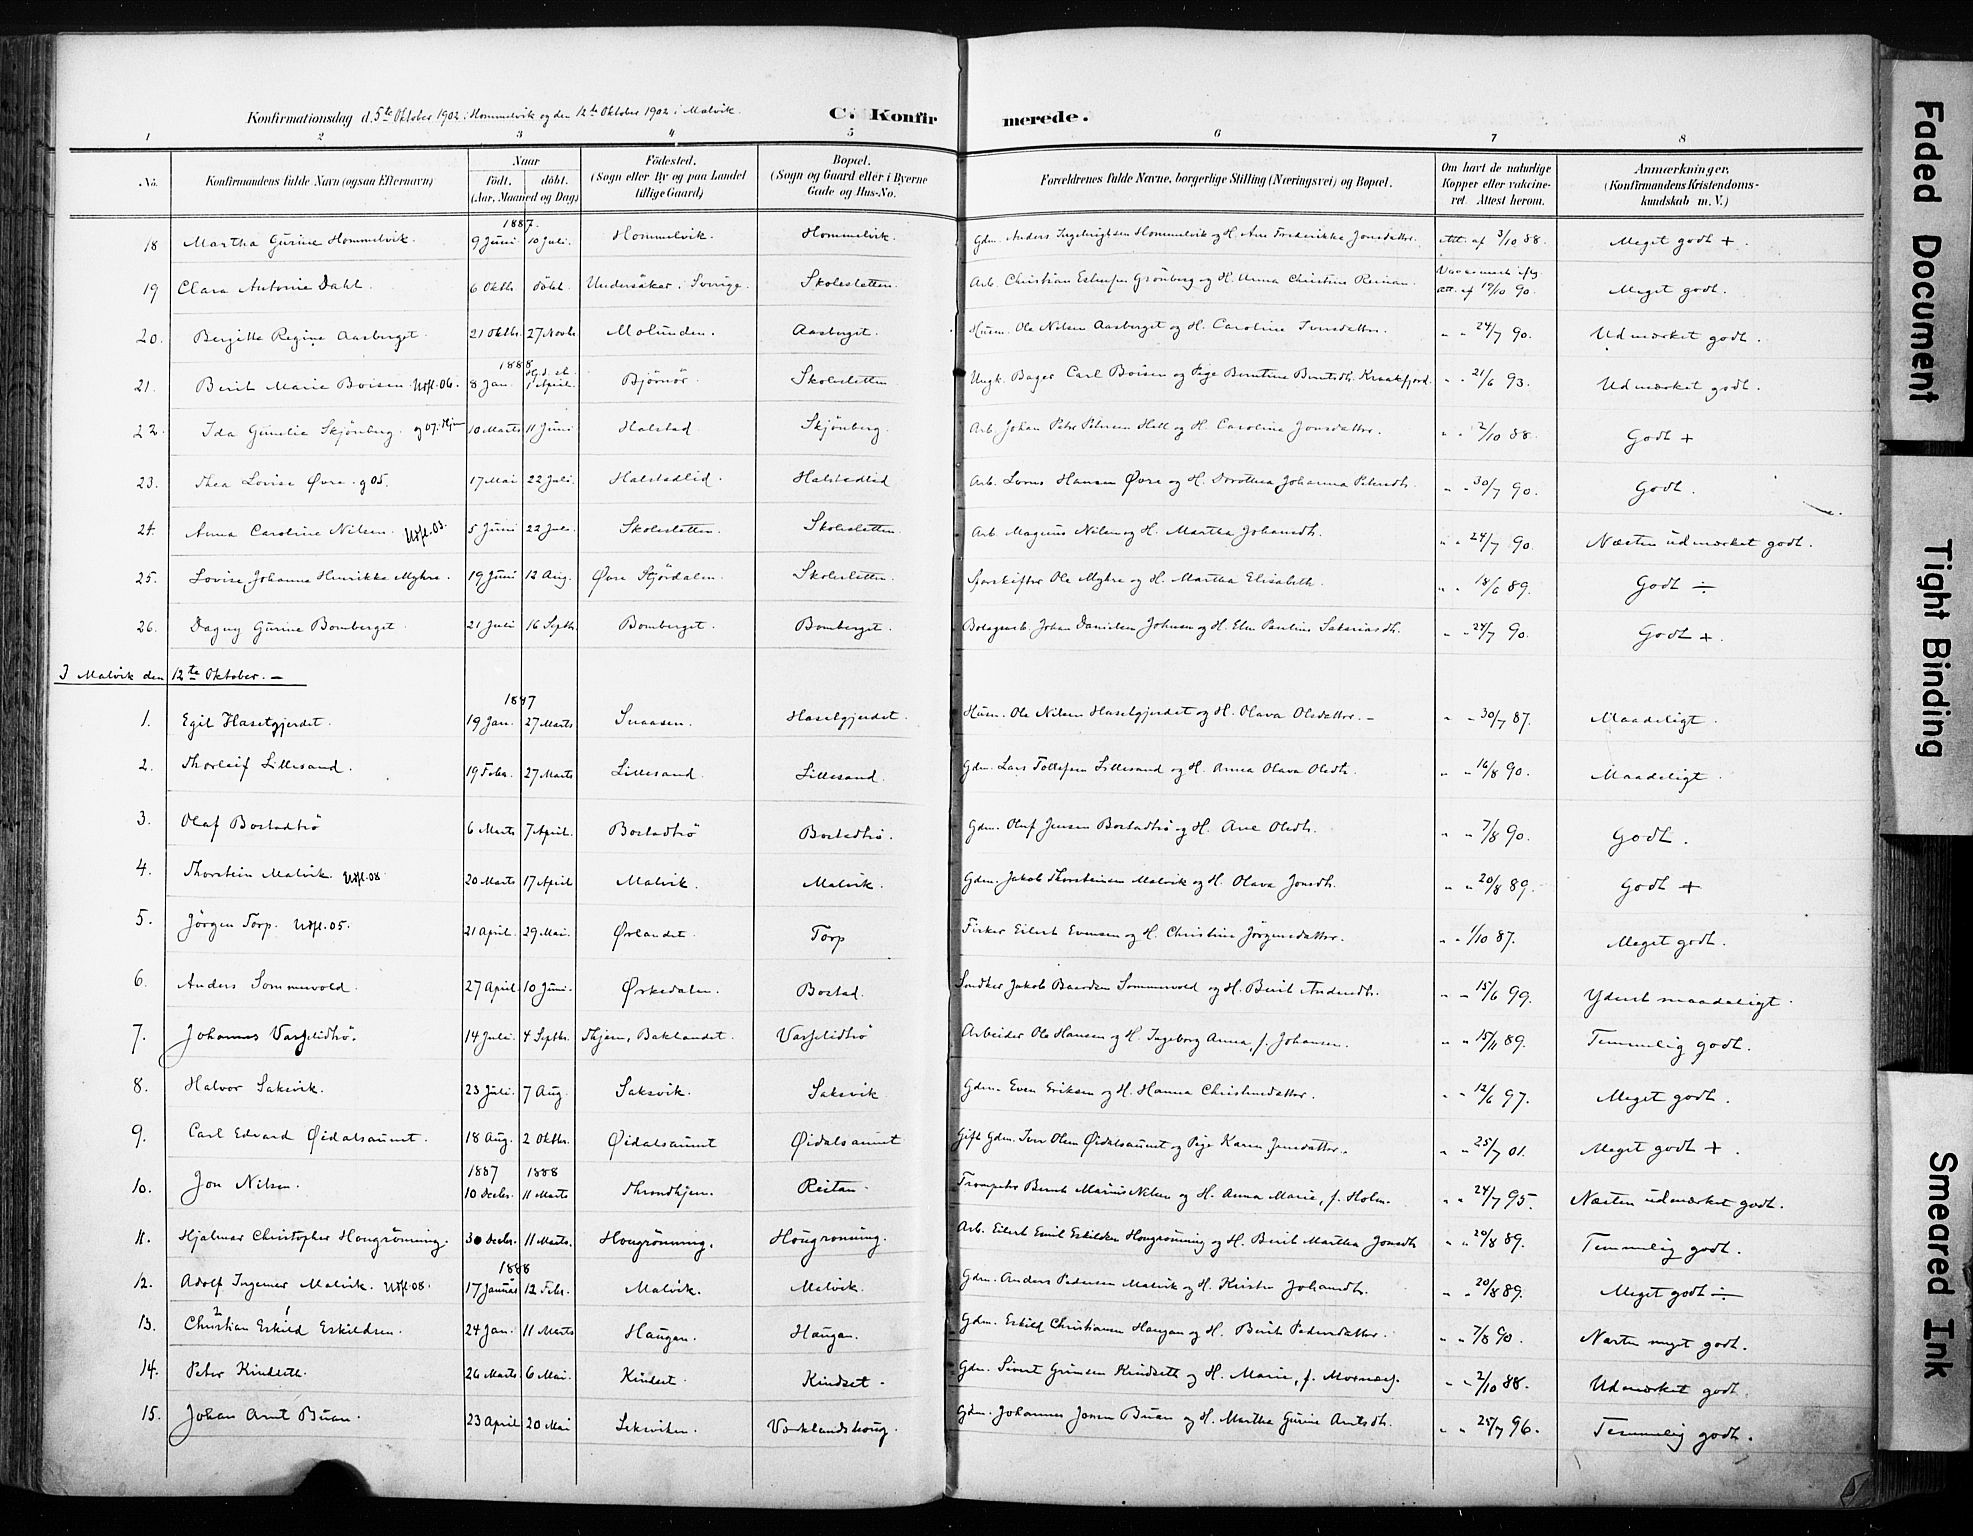 Konfirmationsdag d. 5te Oktober 1902 i Hommelvik og den 12te Oktober 1902 i Malvik. C. Konfirmerede.
1 2 3 4 5 6 7 8
No. Konfirmandens fulde Navn (ogsaa Efternavn) Naar födt. döbt. (Aar, Maaned og Dag) Födested. (Sogn eller By og paa Landet tillige Gaard) Bopæl. (Sogn og Gaard eller i Byerne Gade og Hus-No. Forældrenes fulde Navne, borgerlige Stilling (Næringsvei) og Bopæl. Om havt de naturlige Kopper eller vakcineret. Attest herom. Anmærkninger. (Konfirmandens Kristendomskundskab m. V.)
1887.
18 Martha Gurine Hommelvik. 9 Juni 10 Juli. Hommelvik. Hommelvik. Gdm. Anders Ingebrigtsen Hommelvik og H. Ane Frederikke Jonsdatter. Att. af 3/10 88. Meget godt +.
19 Clara Antonie Dahl. 6 Oktbr. döbt. Undersåker i Sverige. Skolesletten. Arb. Christian Grönberg og H. Anna Christine Reinan. att. af 17/10 90. Meget godt.
20. Bergitte Regine Aasberget. 21 Oktbr. 27 Novbr. Molunden. Aasberget. Husm. Ole Nilsen Aasberget og H. Caroline Iversdatter. " " 24/7 90. Udmærket godt.
1888
21. Berit Marie Boisen. Udfl. 06. 8 Jan. 1 April. Björnör. Skolesletten Ungk. Bager Carl Boisen og Pige Berntine Berntsdtr. Kraakfjord. " " 21/6 93. Udmærket godt.
22. Ida Gunelie Skjönberg. 10 Marts 11 Juni Halstad. Skjönberg. Arb. Johan Peter Petersen Hell og H. Caroline Jonsdatter. " " 2/10 88. Godt +
23. Thea Lovise Øvre. g 05. 17 Mai 22 Juli. Halstadlid. Halstadlid Arb. Lorns Hansen Øvre og H. Dorothea Johanna Petersdtr. " " 30/7 90. Godt.
24. Anna Caroline Nilsen. Udfl. 03. 5 Juni 22 Juli. Skolesletten. Skolesletten. Arb. Magnus Nilsen og H. Martha Johansdtr. " " 24/7 90. Næsten udmærket godt.
25. Lovise Johanna Henrikke Myhre. 19 Juni 12 Aug. Øvre Stjördalen. Skolesletten. Sporskifter Ole Myhre og H. Martha Elisabeth. " " 18/6 89. Godt ÷
26. Dagny Gurine Bomberget. 21 Juli 16 Septbr. Bomberget. Bomberget. Bolagsarb. Johan Danielsen Johnsen og H. Elen Pauline Sakariasdtr. " " 24/7 90. Godt +.
I Malvik den 12te Oktober. —
1887
1. Egil Haselgjerdet. 19 Jan. 27 Marts Snaasen. Haselgjerdet. Husm. Ole Nilsen Haselgjerdet og H. Olava Olsdatter. — " " 30/7 87. Maadeligt.
2. Thorleif Lillesand. 19 Febr. 27 Marts. Lillesand. Lillesand. Gdm. Lars Tollefsen Lillesand og H. Anna Olava Olsdtr. " " 16/8 90. Maadeligt.
3. Olaf Bostadtrö 6 Marts 7 April. Bostadtrö Bostadtrö. Gdm. Oluf Jensen Bostadtrö og H. Ane Olsdtr. " " 7/8 90. Godt.
4. Thorstein Malvik. Udfl. 08. 20 Marts 17 April Malvik. Malvik. Gdm. Jakob Thorsteinsen Malvik og H. Olava Jonsdtr. " " 20/8 89. Godt +
5. Jörgen Torp. Udfl. 05. 21 April. 29 Mai. Ørlandet. Torp Fisker Eilert Evensen og H. Christine Jörgensdatter. " " 1/10 87. Meget godt.
6. Anders Sommervold. 27 April. 10 Juni. Ørkedalen. Bostad. Snedker Jakob Baardsen Sommervold og H. Berit Andersdtr. " " 15/6 99. Yderst maadeligt.
7. Johannes Varslidtrö. 14 Juli 4 Septbr. Thjem, Baklandet. Varslidtrö Arbeider Ole Hansen og H. Ingeborg Anna, f. Johansen. " " 15/11 89. Temmelig godt.
8. Halvor Saksvik. 23 Juli. 7 Aug. Saksvik. Saksvik Gdm. Even Eriksen og H. Hanna Christensdatter. " " 12/6 97. Meget godt.
9. Carl Edvard Øidalsaunet. 18 Aug. 2 Oktbr. Øidalsaunet Øidalsaunet Gift Gdm. Iver Olsen Øidalsaunet og Pige Karen Jensdatter. " " 25/7 01. Meget godt +.
1887 1888
10. Jon Nilsen. 10 Decbr. 11 Marts Throndhjem. Reitan. Trompeter Bernt Marius Nilsen og H. Anna Marie, f. Holm. " " 24/7 95. Næsten udmærket godt.
11. Hjalmar Christopher Hougrönning. 30 Decbr. 11 Marts. Hougrönning. Hougrønning. Arb. Eilert Emil Eskildsen Hougrönning og H. Berit Martha Jonsdtr " " 20/8 89. Temmelig godt.
1888
12. Adolf Ingemar Malvik. Udfl. 08. 17 Januar 12 Febr. Malvik. Malvik. Gdm. Anders Pedersen Malvik og H. Kirsten Johansdtr. " " 20/8 89. Meget godt ÷
13. Christian Eskild Eskildsen. 24 Jan. 11 Marts Haugan. Haugan. Gdm. Eskild Christiansen Haugan og H. Berit Pedersdatter. " " 7/8 90. Næsten meget godt.
14. Peter Kindseth. 26 Marts. 6 Mai. Kindset. Kindset. Gdm. Sivert Grimsen Kindseth og H. Marie, f. Mornæs. " " 2/10 88. Udmærket godt.
15. Johan Arnt Buan. 23 April 20 Mai Leksviken. Varklandshoug. Gdm. Johannes Jonsen Buan og H. Martha Gurine Arntsdtr. " " 25/7 96. Temmelig godt.
Faded Document
Tight Binding
Smeared Ink